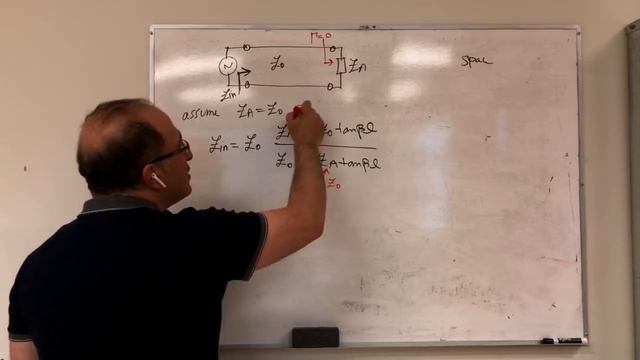 Γ=0
Z₀ Z_A
spac
Z_in
assume Z_A = Z₀
Z_in = Z₀ Z₀ tanβl
Z₀ Z_A tanβl
Z₀